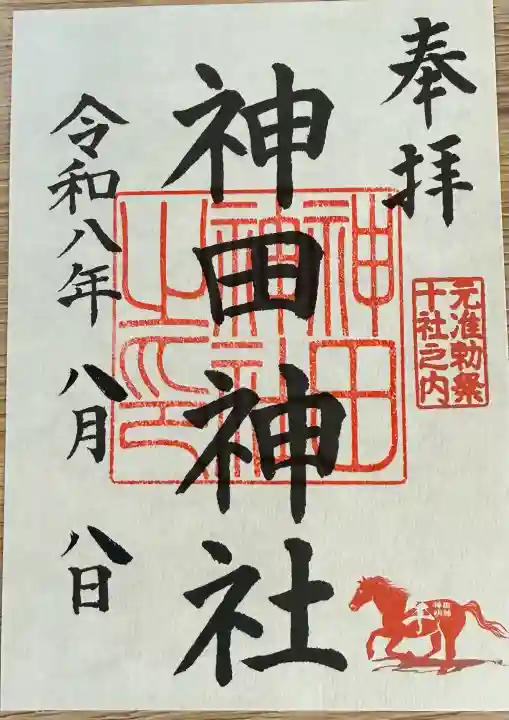 奉拝
元准勅祭
十社之内
神田神社
神田
神社
之印
令和八年 八月 八日